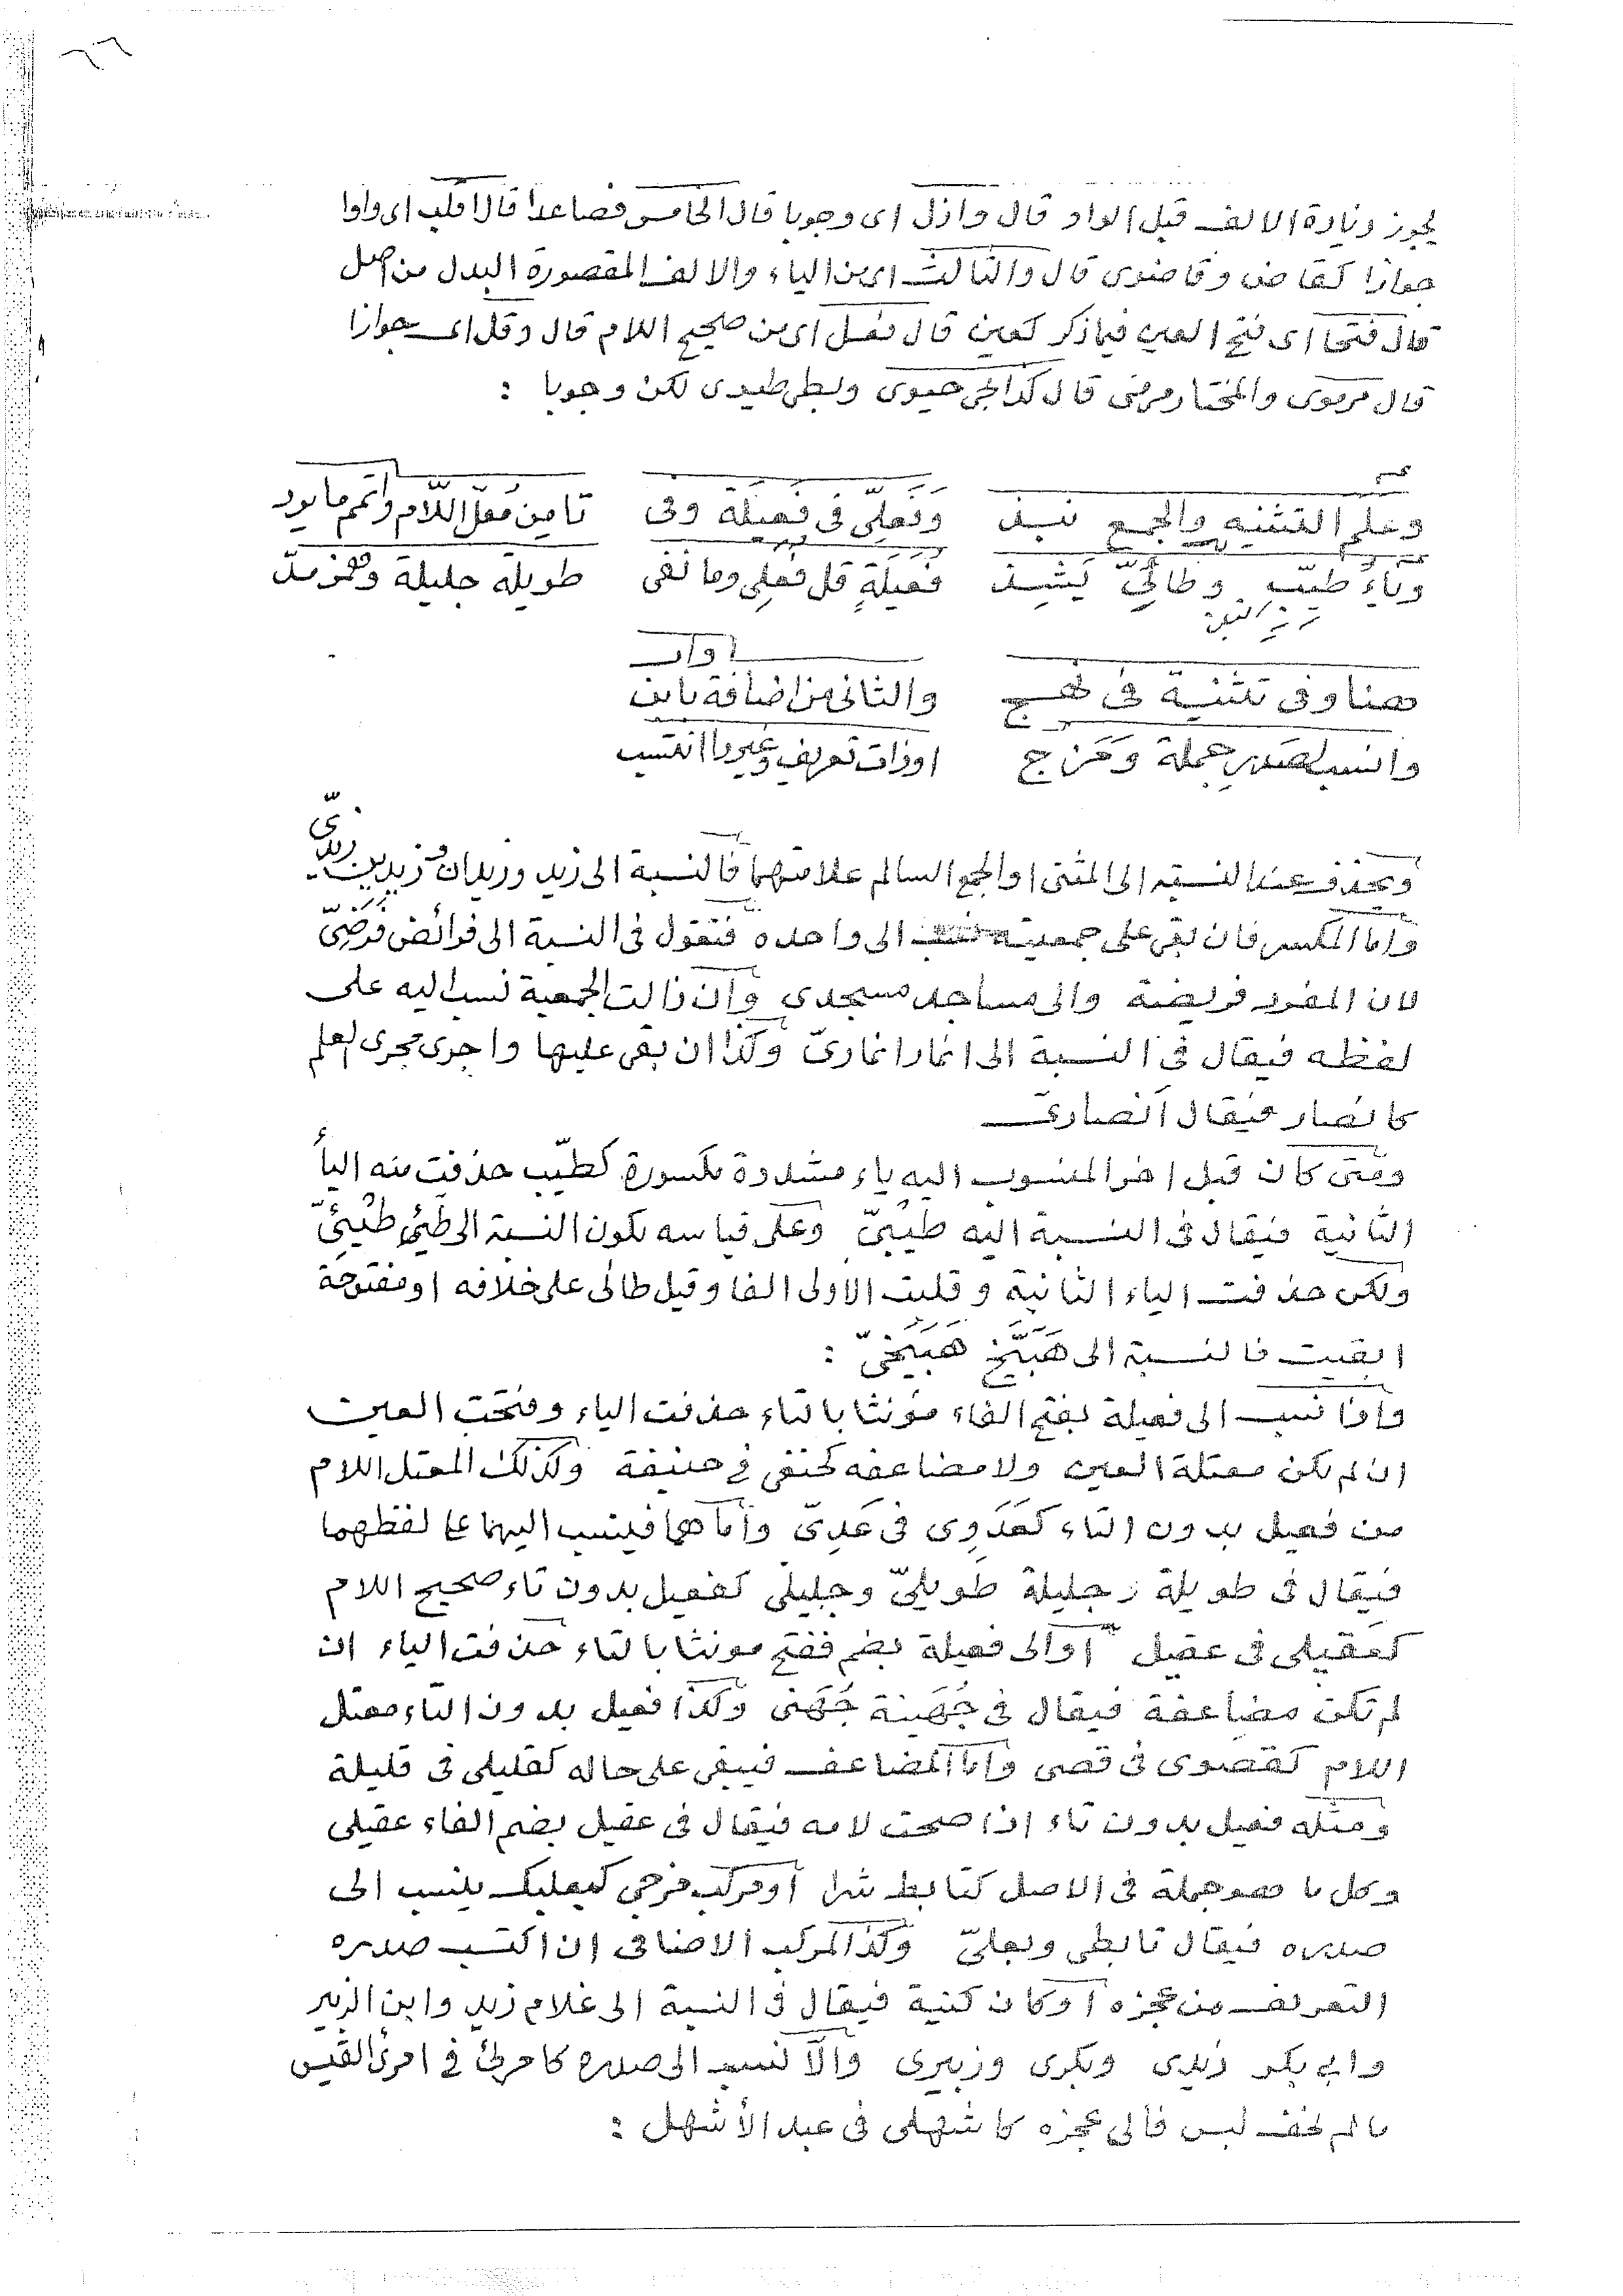 ٦٦
يجوز زيادة الالف قبل الواو قال وازل اى وجوبا قال الخامس فصاعدا قال اقلب اى واوا
جوازا كقاض وقاضوى قال والثالث اى من الياء والالف المقصورة البدل من اصل
قال فتحا اى فتح العين فيما ذكر كعين قال فعل اى من صحيح اللام قال وقل اى جوازا
قال مرموى والمختار مرمى قال كذا لحى حيوى ولطى طيوى لكن وجوبا :
وعلم التثنيه والجمع نبذ وفَعَلىّ فى فَعيلة وفى تا من مُعَلّ اللّام واتمم ما يود
وياء طيّب وطائىّ يشِذ فُعيلَةٍ قل فُعَلى وما نفى طويلة جليلة وهمز مدّ
هنا وفى تثنية فى نهج والثانى من اضافة بابن اواب
وانسب لصدرِ جملة ومَزج اوذات تعريف وغيرها انتسب
ويحذف عند النسبة الى المثنى او الجمع السالم علامتهما فالنسبة الى زيد وزيدان وزيدين زيدىّ
واما المكسر فان بقى على جمعيته نسب الى واحده فتقول فى النسبة الى فرائض فَرَضِىّ
لان المفرد فريضة والى مساجد مسجدى وان زالت الجمعية نسب اليه على
لفظه فيقال فى النسبة الى انمار انمارىّ وكذا ان بقى عليها واجرى مجرى العلم
كانصار فيقال انصارىّ
ومتى كان قبل اخر المنسوب اليه ياء مشددة مكسورة كطيّب حذفت منه اليأ
الثانية فيقال فى النسبة اليه طيْبىّ وعلى قياسه يكون النسبة الى طيّئ طيْئِىّ
ولكن حذفت الياء الثانية وقلبت الاولى الفا وقيل طائى على خلافه او مفتوحة
ابقيت فالنسبة الى هَبَيَّخ هَبَيَّخىّ :
واذا نسب الى فعيلة بفتح الفاء مؤنثا بالتاء حذفت الياء وفتحت العين
ان لم تكن معتلة العين ولا مضاعفه كحنفى فى حنيفة وكذلك المعتل اللام
من فعيل بدون التاء كعَدَوِى فى عَدِىّ وأما هما فينسب اليهما على لفظهما
فيقال فى طويلة وجليلة طَويلىّ وجليلى كفعيل بدون تاء صحيح اللام
كعَقيلى فى عقيل أوالى فعيلة بضم ففتح مونثا بالتاء حذفت الياء ان
لم تكن مضاعفة فيقال فى جُهَينة جُهَنى وكذا فعيل بدون التاء معتل
اللام كقصوى فى قصى واما المضاعف فيبقى على حاله كقليلى فى قليلة
ومثله فعيل بدون تاء اذا صحت لامه فيقال فى عقيل بضم الفاء عقيلى
وكل ما هو جملة فى الاصل كتابط شرا أومركب مزجى كبعلبك ينسب الى
صدره فيقال تابطى وبعلىّ وكذا المركب الاضافى إن اكتسب صدره
التعريف من عجزه أوكان كنية فيقال فى النسبة الى غلام زيد وابن الزبير
وابى بكر زيدى وبكرى وزبيرى والّا نسب الى صدره كامرئى فى امرئ القيس
مالم يخف لبس فالى عجزه كاشهلى فى عبد الأشهل :